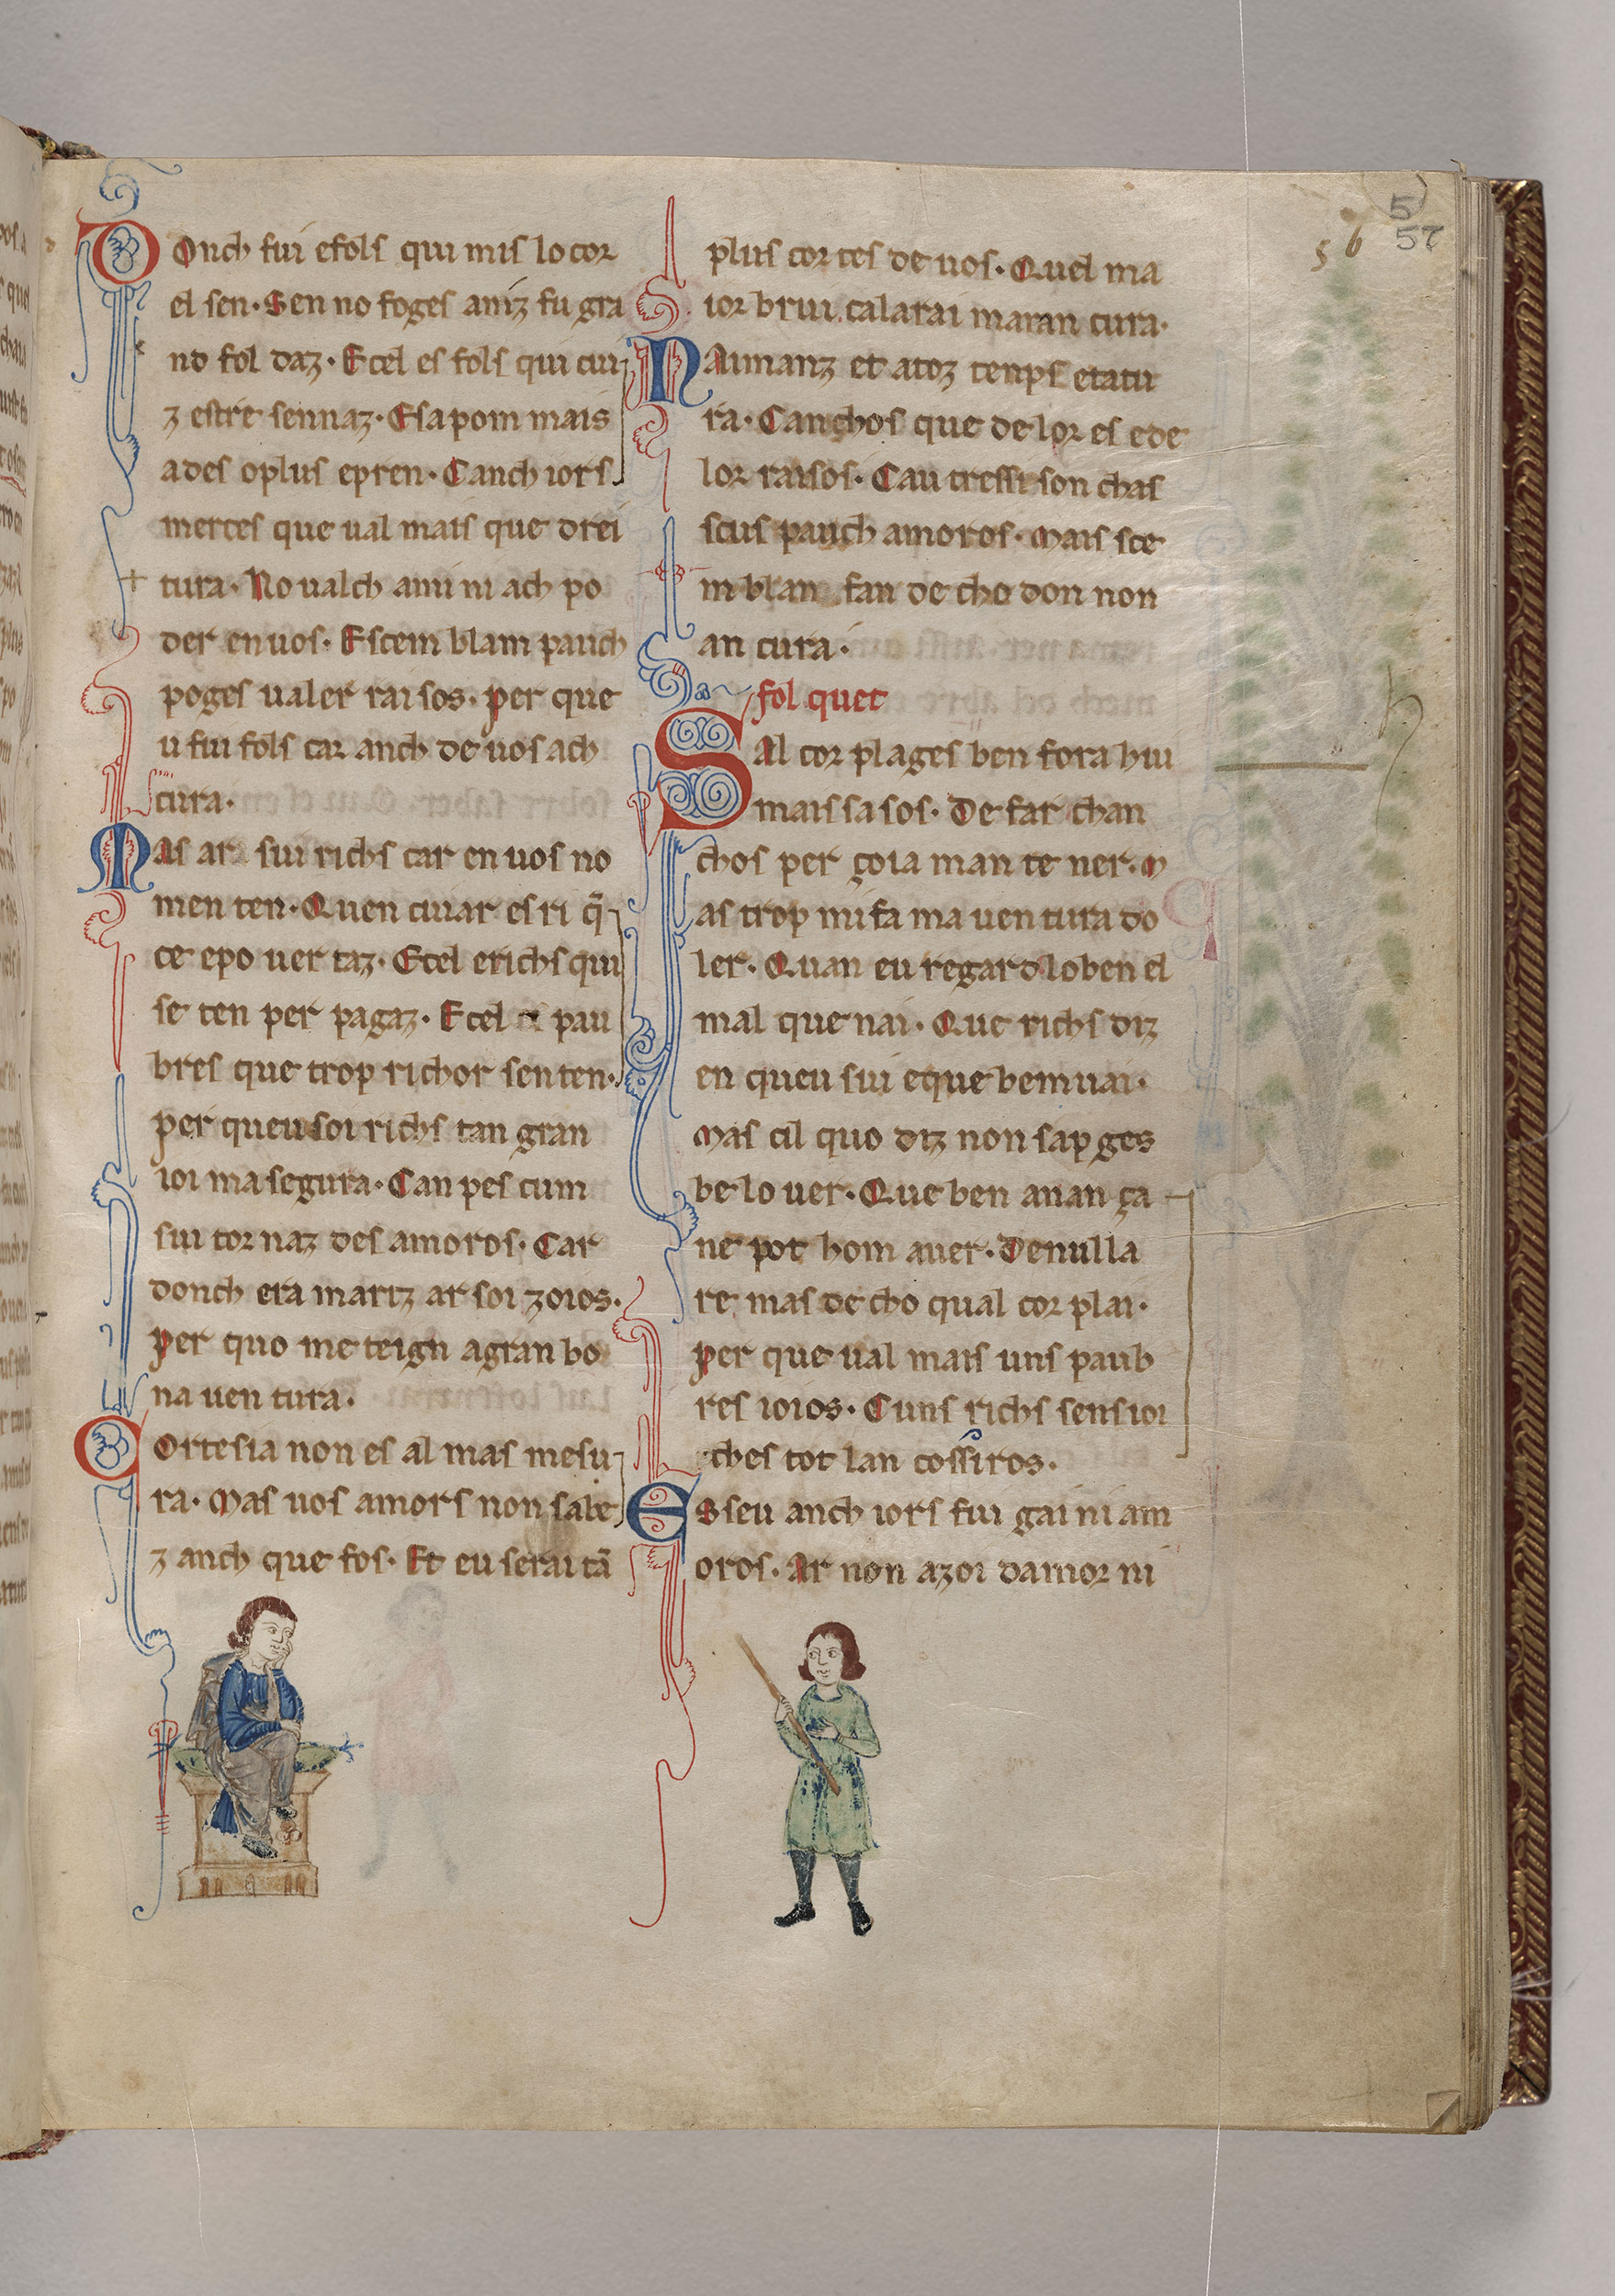 5
57
56
Onch fui efols qui mis lo cor
el sen· Sen no foges aniz fu gra
no fol daz· Ecel es fols qui cui
z estre sennaz· Esapom mais
ades oplus epren· Canch iors
merces que ual mais que drei
tura· No ualch ami ni ach po
der en uos· Escem blam pauch
poges ualer rai sos· per que
u fui fols car anch de uos ach
cura·
Mas ar sui richs car en uos no
men ten· Quen cuiar es ri q̃
ce epo uer taz· Ecel erichs qui
se ten per pagaz· Ecel pau
bres que trop richor senten·
per queu soi richs tan gran
ioi ma segura· Can pes cum
sui tor naz des amoros· Car
donch era mariz ar soi zoios·
per quo me teign a gran bo
na uen tura·
Cortesia non es al mas mesu
ra· Mas uos amors non sabe
z anch que fos· Et eu serai tã
plus cor tes de uos· Quel ma
ior brui calarai maran cura·
Naimanz et atoz tenps etatu
ra· Canchos que de lor es ede
lor raisos· Cau tressi son chas
scus pauch amoros· Mais sce
m blan fan de cho don non
an cura·
fol quet
Sal cor plages ben fora hiu
mais sa sos· De far chan
chos per goia man te ner· M
as trop mi fa ma uen tura do
ler· Quan eu regard lo ben el
mal que nai· Que richs diz
en queu sui eque bem uai·
Mas cil quo diz non sap ges
be lo uer· Que ben anan ça
ne pot hom auer· De nulla
re mas de cho qual cor plai·
per que ual mais uns paub
res ioios· Cuns richs sens ioi
ches tot lan cossiros·
Esseu anch iors fui gai ni am
oros· Ar non azoi damor ni